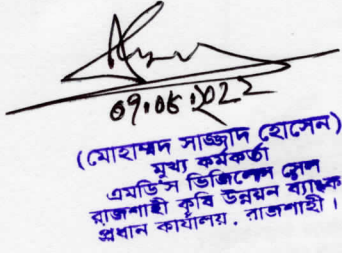 ০৭.০৮.২০২২
(মোহাম্মদ সাজ্জাদ হোসেন)
মূখ্য কর্মকর্তা
এমডি'স ভিজিলেন্স সেল
রাজশাহী কৃষি উন্নয়ন ব্যাংক
প্রধান কার্যালয়, রাজশাহী।